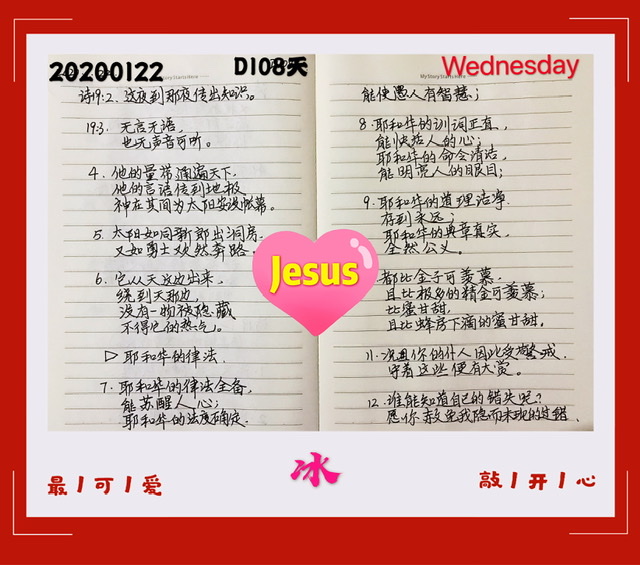 20200122
D108天
Wednesday
My Story Starts Here
诗19:2. 这夜到那夜传出知识。
19:3. 无言无语，
也无声音可听。
4. 他的量带通遍天下，
他的言语传到地极
神在其间为太阳安设帐幕。
5. 太阳如同新郎出洞房，
又如勇士欢然奔路。
6. 它从天这边出来，
绕到天那边，
没有一物被隐藏
不得它的热气。
▷ 耶和华的律法.
7. 耶和华的律法全备，
能苏醒人心；
耶和华的法度确定.
能使愚人有智慧；
8. 耶和华的训词正直，
能快活人的心；
耶和华的命令清洁，
能明亮人的眼目；
9. 耶和华的道理洁净.
存到永远；
耶和华的典章真实，
全然公义。
都比金子可羡慕，
且比极多的精金可羡慕；
比蜜甘甜，
且比蜂房下滴的蜜甘甜，
11. 况且你的仆人因此受警戒.
守着这些便有大赏。
12. 谁能知道自己的错失呢？
愿你赦免我隐而未现的过错.
Jesus
冰
最 | 可 | 爱
敲 | 开 | 心